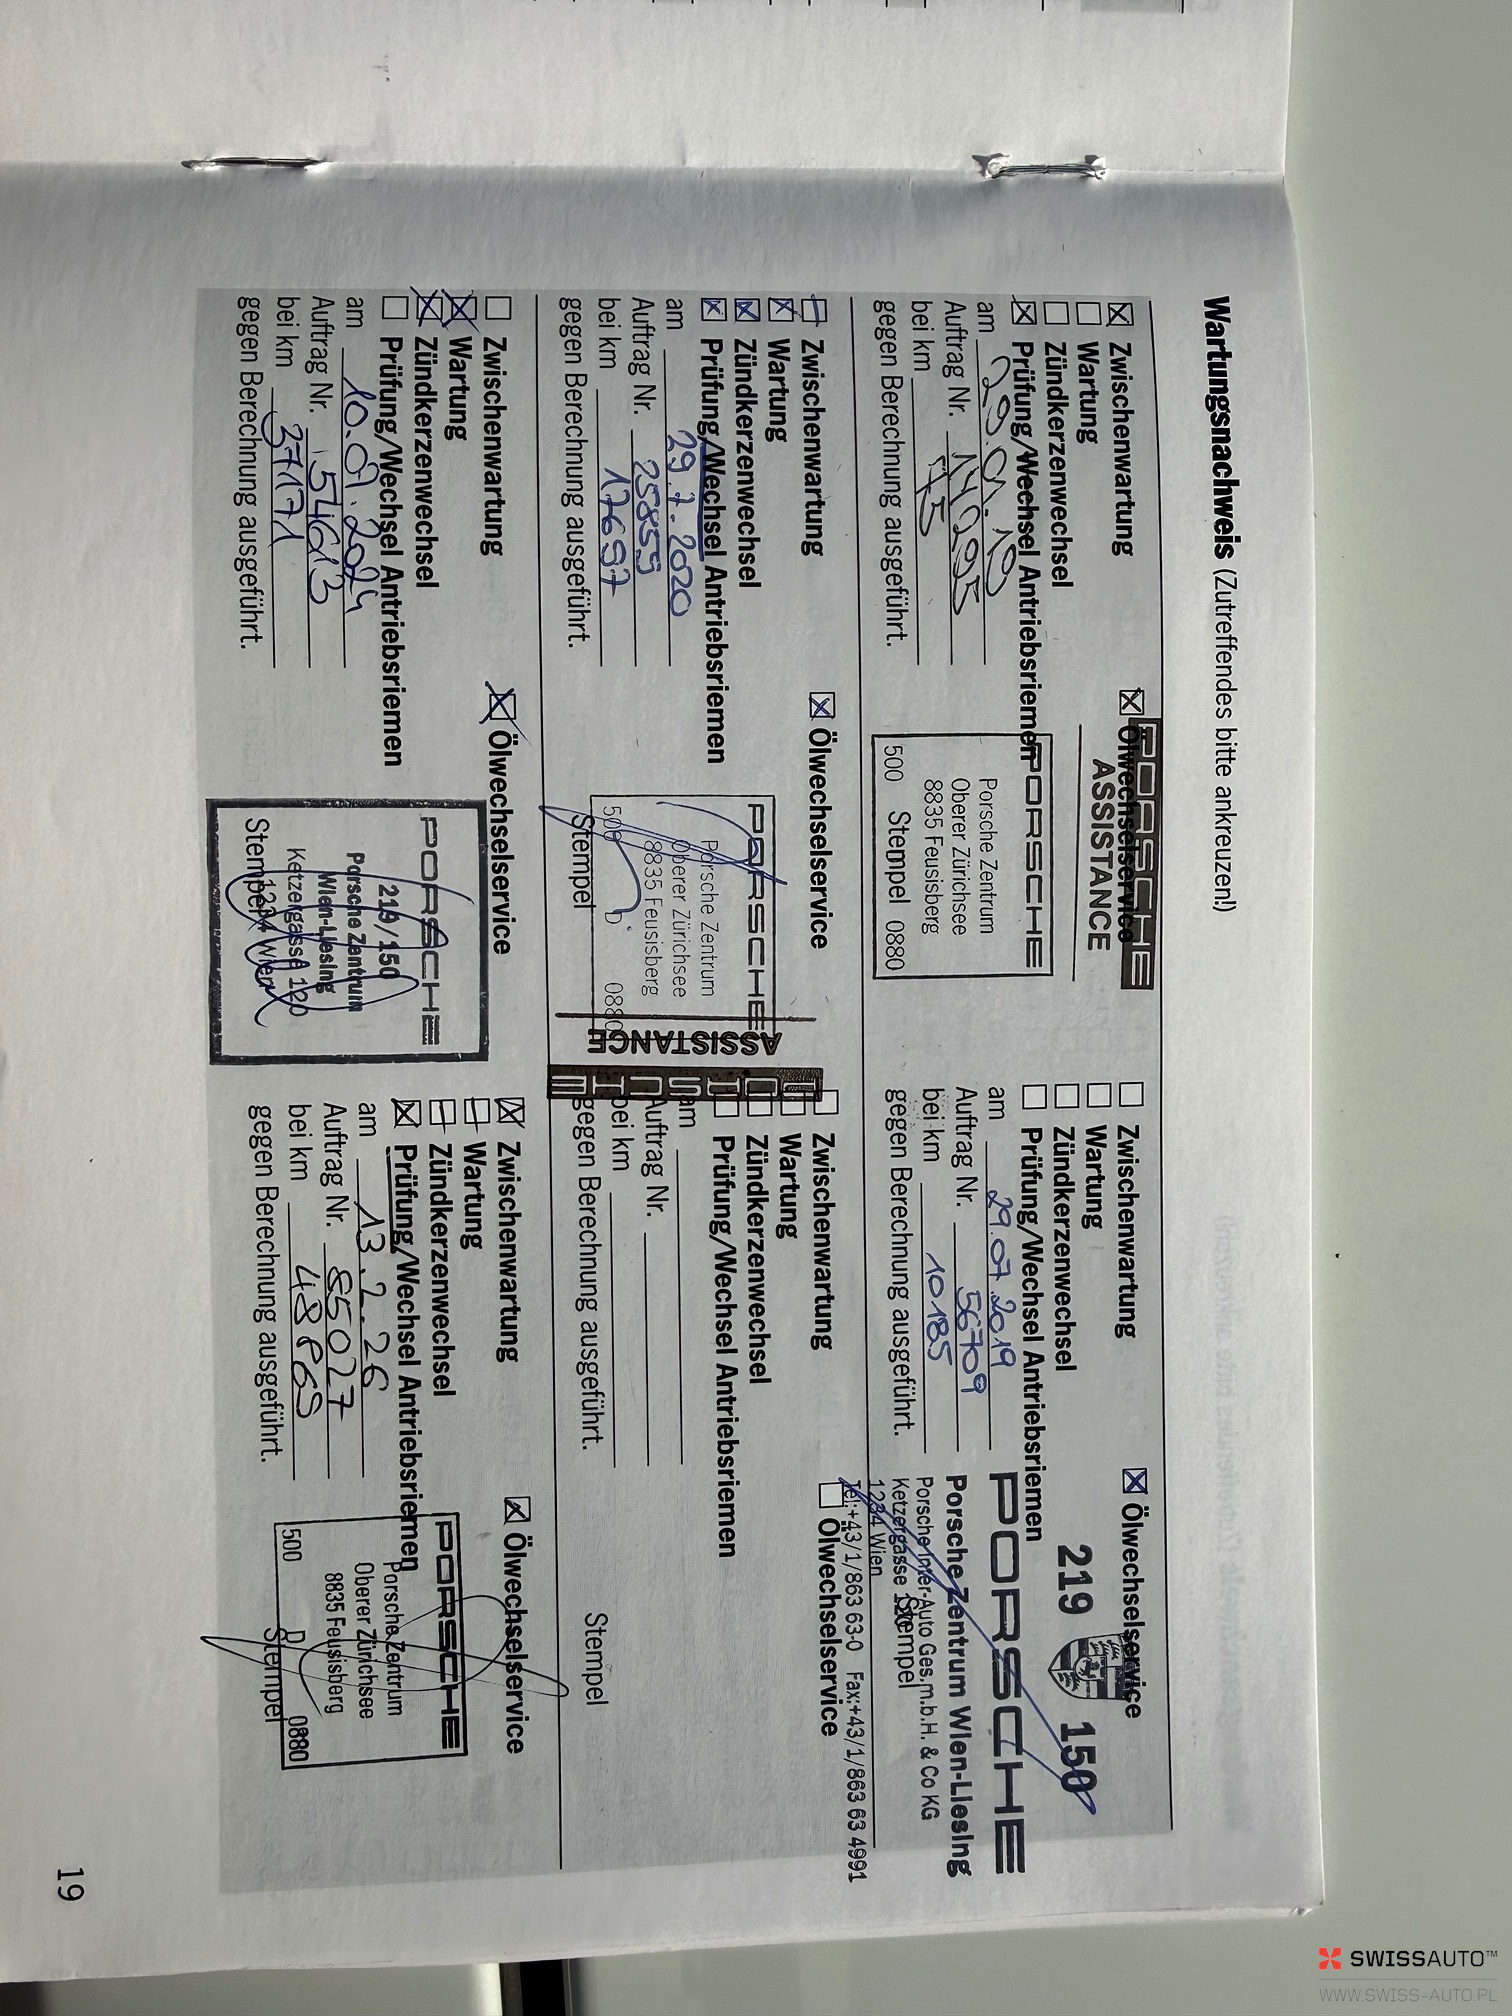 Wartungsnachweis (Zutreffendes bitte ankreuzen!)
Zwischenwartung
Ölwechselservice
Wartung
Zündkerzenwechsel
Prüfung/Wechsel Antriebsriemen
am
Auftrag Nr.
bei km
gegen Berechnung ausgeführt.
PORSCHE
ASSISTANCE
PORSCHE
Porsche Zentrum
Oberer Zürichsee
8835 Feusisberg
500 Stempel 0880
Zwischenwartung
Ölwechselservice
Wartung
Zündkerzenwechsel
Prüfung/Wechsel Antriebsriemen
am 29.07.2019
Auftrag Nr. 56709
bei km 10185
gegen Berechnung ausgeführt.
219 150
PORSCHE
Porsche Zentrum Wien-Liesing
Porsche Inter-Auto Ges.m.b.H. & Co KG
Ketzergasse 120
Stempel
1234 Wien
Tel:+43/1/863 63-0 Fax:+43/1/863 63 4991
Zwischenwartung
Ölwechselservice
Wartung
Zündkerzenwechsel
Prüfung/Wechsel Antriebsriemen
am 29.7.2020
Auftrag Nr. 25855
bei km 17697
gegen Berechnung ausgeführt.
PORSCHE
Porsche Zentrum
Oberer Zürichsee
8835 Feusisberg
500 D 0880
Stempel
PORSCHE
ASSISTANCE
Zwischenwartung
Ölwechselservice
Wartung
Zündkerzenwechsel
Prüfung/Wechsel Antriebsriemen
am
Auftrag Nr.
bei km
gegen Berechnung ausgeführt.
Stempel
Zwischenwartung
Ölwechselservice
Wartung
Zündkerzenwechsel
Prüfung/Wechsel Antriebsriemen
am
Auftrag Nr. 54613
bei km 37171
gegen Berechnung ausgeführt.
PORSCHE
219/150
Porsche Zentrum
Wien-Liesing
Ketzergasse 120
1234 Wien
Stempel
Zwischenwartung
Ölwechselservice
Wartung
Zündkerzenwechsel
Prüfung/Wechsel Antriebsriemen
am 13.2.26
Auftrag Nr. 85027
bei km 48869
gegen Berechnung ausgeführt.
PORSCHE
Porsche Zentrum
Oberer Zürichsee
8835 Feusisberg
500 D 0880
Stempel
19
SWISSAUTO™
WWW.SWISS-AUTO.PL